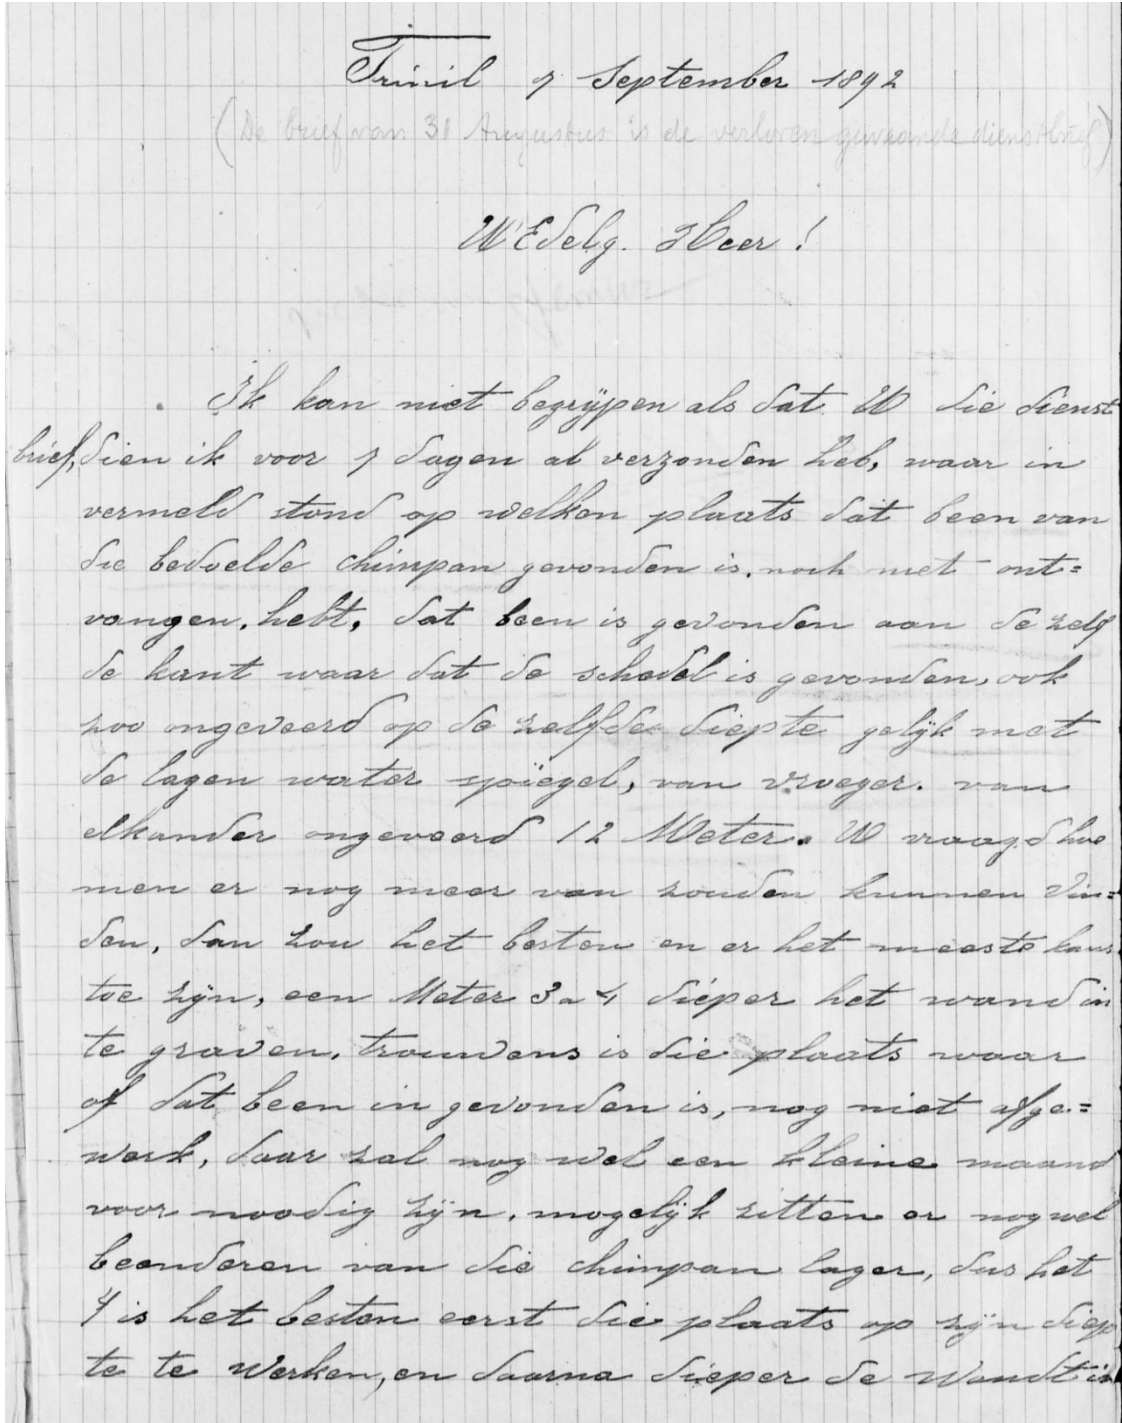 Trinil 7 September 1892
(De brief van 31 Augustus is de verloren gewaande dienstbrief)
W'Edelg. Heer!
Ik kan niet begrijpen als dat U die dienst
brief, dien ik voor 7 dagen al verzonden heb, waar in
vermeld stond op welken plaats dat been van
die bedoelde chimpan gevonden is. noch niet ont=
vangen. hebt, dat been is gevonden aan de zelf
de kant waar dat de schedel is gevonden, ook
zoo ongeveerd op de zelfde diepte gelijk met
de lagen water spiegel, van vroeger. van
elkander ongeveerd 12 Meter. U vraagd hoe
men er nog meer van zouden kunnen vin=
den, dan zou het besten en er het meeste kans
toe zijn, een Meter 3 a 4 dieper het wand in
te graven. trouwens is die plaats waar
of dat been in gevonden is, nog niet afge=
werk, daar zal nog wel een kleine maand
voor noodig zijn. mogelijk zitten er nog wel
beenderen van die chimpan lager, dus het
is het besten eerst die plaats op zijn diep
te te werken, en daarna dieper de Wandt in